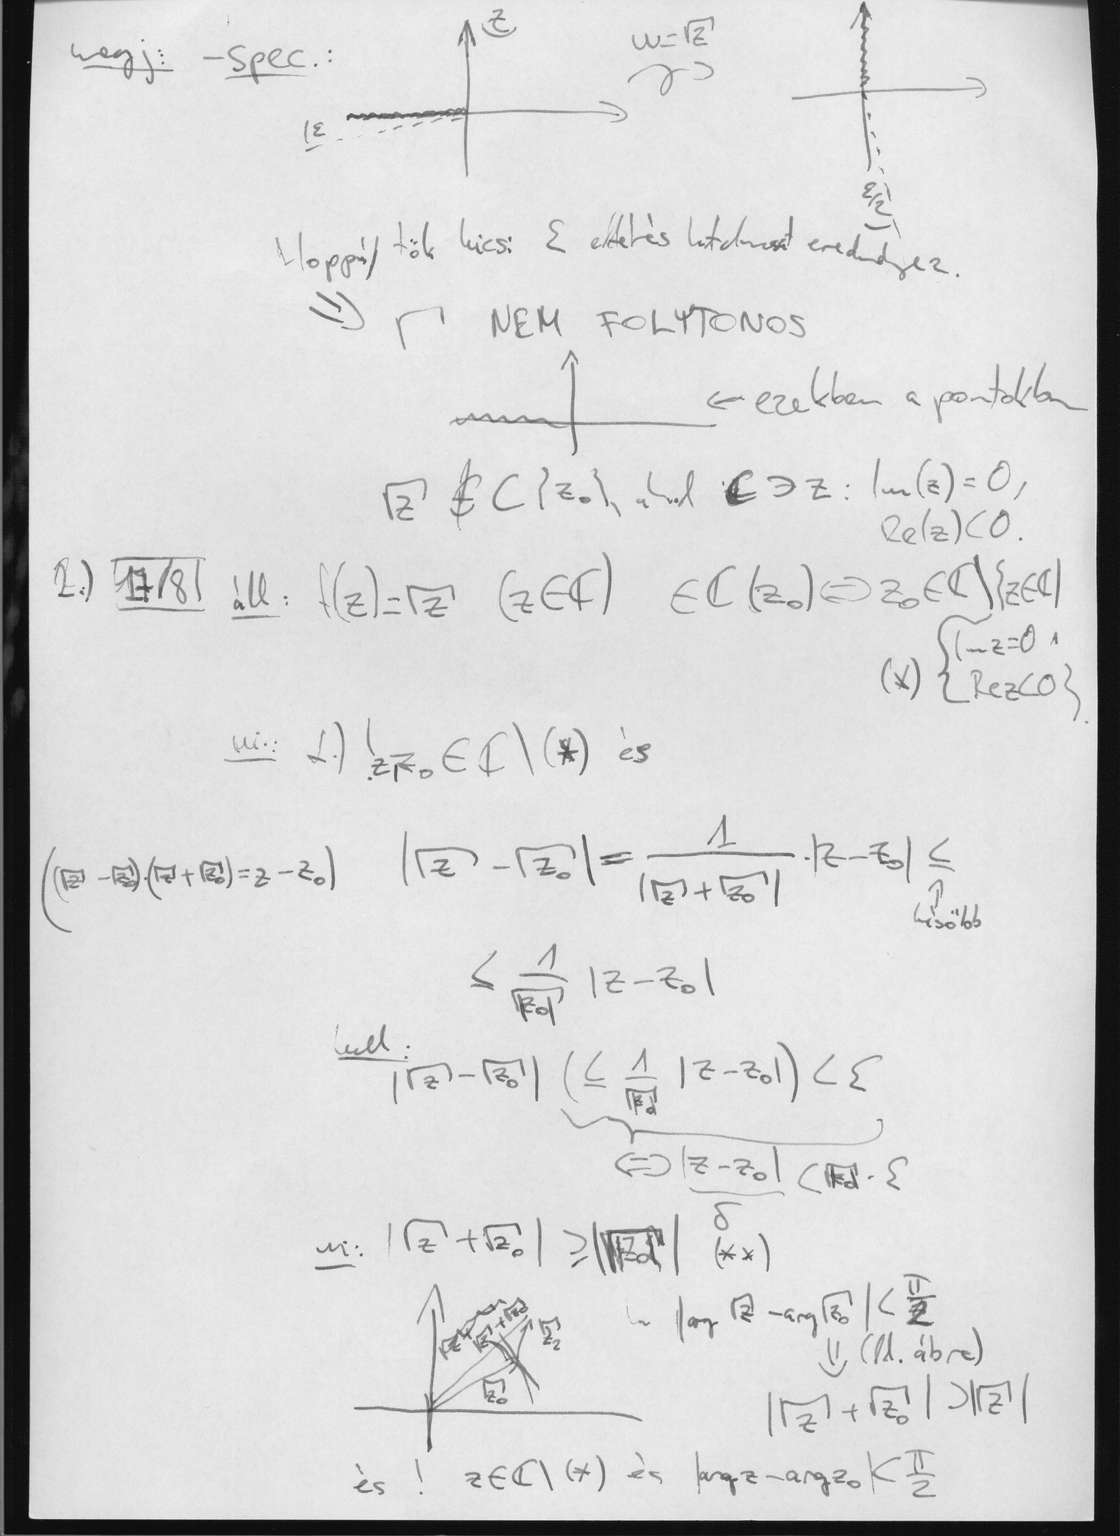 megj: -Spec.:
z
w=√z
|ε
ε/2
Hoppá! tök kicsi ε eltérés hatalmasat eredményez.
⇒ √ NEM FOLYTONOS
← ezekben a pontokban
√z ∉ C{z₀}, ahol ℂ∋z: Im(z)=0,
Re(z)<0.
2.) 17/8 áll: f(z)=√z (z∈ℂ) ∈ℂ(z₀) ⇔ z₀∈ℂ\{z∈ℂ|
Im z=0,
(*) Re z<0}.
ui.: 1.) ! z, z₀∈ℂ\(*) és
((√z-√z₀)·(√z+√z₀)=z-z₀) |√z-√z₀|= 1/|√z+√z₀| ·|z-z₀| ≤
később
≤ 1/|√z₀| |z-z₀|
kell:
|√z-√z₀| (≤ 1/|√z₀| |z-z₀|) < ε
⇔ |z-z₀| < |√z₀|·ε
δ
ui: |√z+√z₀| ≥ |√z₀| (**)
|arg √z - arg √z₀| < π/2
⇓ (ld. ábra)
√z+√z₀
√z₂
√z₀
|√z+√z₀| > |√z|
és ! z∈ℂ\(*) és |arg z-arg z₀|< π/2